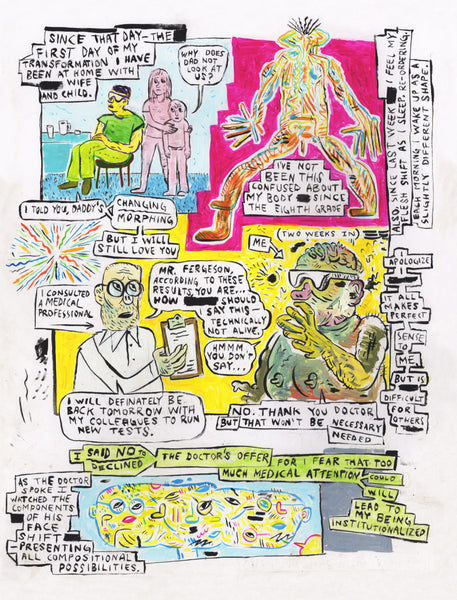 SINCE THAT DAY-THE
FIRST DAY OF MY
TRANSFORMATION I HAVE
BEEN AT HOME WITH
WIFE
AND CHILD.
WHY DOES
DAD NOT
LOOK AT
US?
ALSO, SINCE LAST WEEK I FEEL MY
FLESH SHIFT AS I SLEEP. RE-ORDERING.
EACH MORNING I WAKE UP AS A
SLIGHTLY DIFFERENT SHAPE.
I'VE NOT
BEEN THIS
CONFUSED ABOUT
MY BODY SINCE
THE EIGHTH GRADE
I TOLD YOU, DADDY'S
CHANGING
MORPHING
BUT I WILL
STILL LOVE YOU
TWO WEEKS IN
ME
I CONSULTED
A MEDICAL
PROFESSIONAL
MR. FERGESON,
ACCORDING TO THESE
RESULTS YOU ARE...
HOW SHOULD
I SAY THIS-
TECHNICALLY
NOT ALIVE.
HMMM
YOU DON'T
SAY...
I
APOLOGIZE
IT ALL
MAKES
PERFECT
SENSE
TO
ME
BUT IS
DIFFICULT
FOR
OTHERS
I WILL DEFINATELY BE
BACK TOMORROW WITH
MY COLLEAGUES TO RUN
NEW TESTS.
NO. THANK YOU DOCTOR
BUT THAT WON'T BE NECESSARY
NEEDED
I SAID NO TO
DECLINED
THE DOCTOR'S OFFER
FOR I FEAR THAT TOO
MUCH MEDICAL ATTENTION
COULD
WILL
LEAD TO
MY BEING
INSTITUTIONALIZED
AS THE DOCTOR
SPOKE I
WATCHED THE
COMPONENTS
OF HIS
FACE
SHIFT
-PRESENTING
ALL COMPOSITIONAL
POSSIBILITIES.